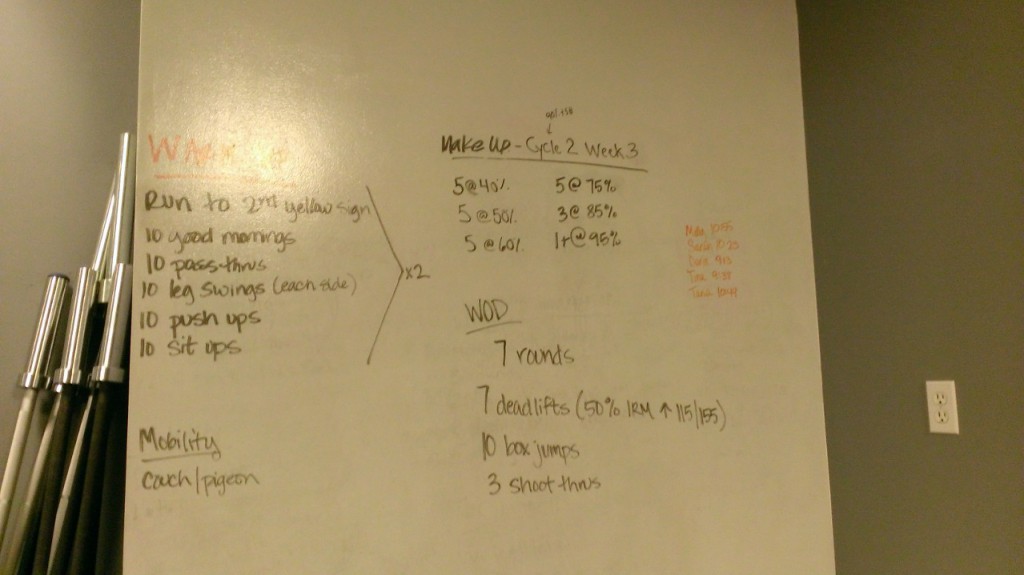 WARM UP
Run to 2nd yellow sign
10 good mornings
10 pass-thrus
10 leg swings (each side)
10 push ups
10 sit ups
x2
Mobility
couch/pigeon
Make Up - Cycle 2 Week 3
5@40% 5@75%
5@50% 3@85%
5@60% 1+@95%
WOD
7 rounds
7 deadlifts (50% 1RM ↑ 115/155)
10 box jumps
3 shoot thrus